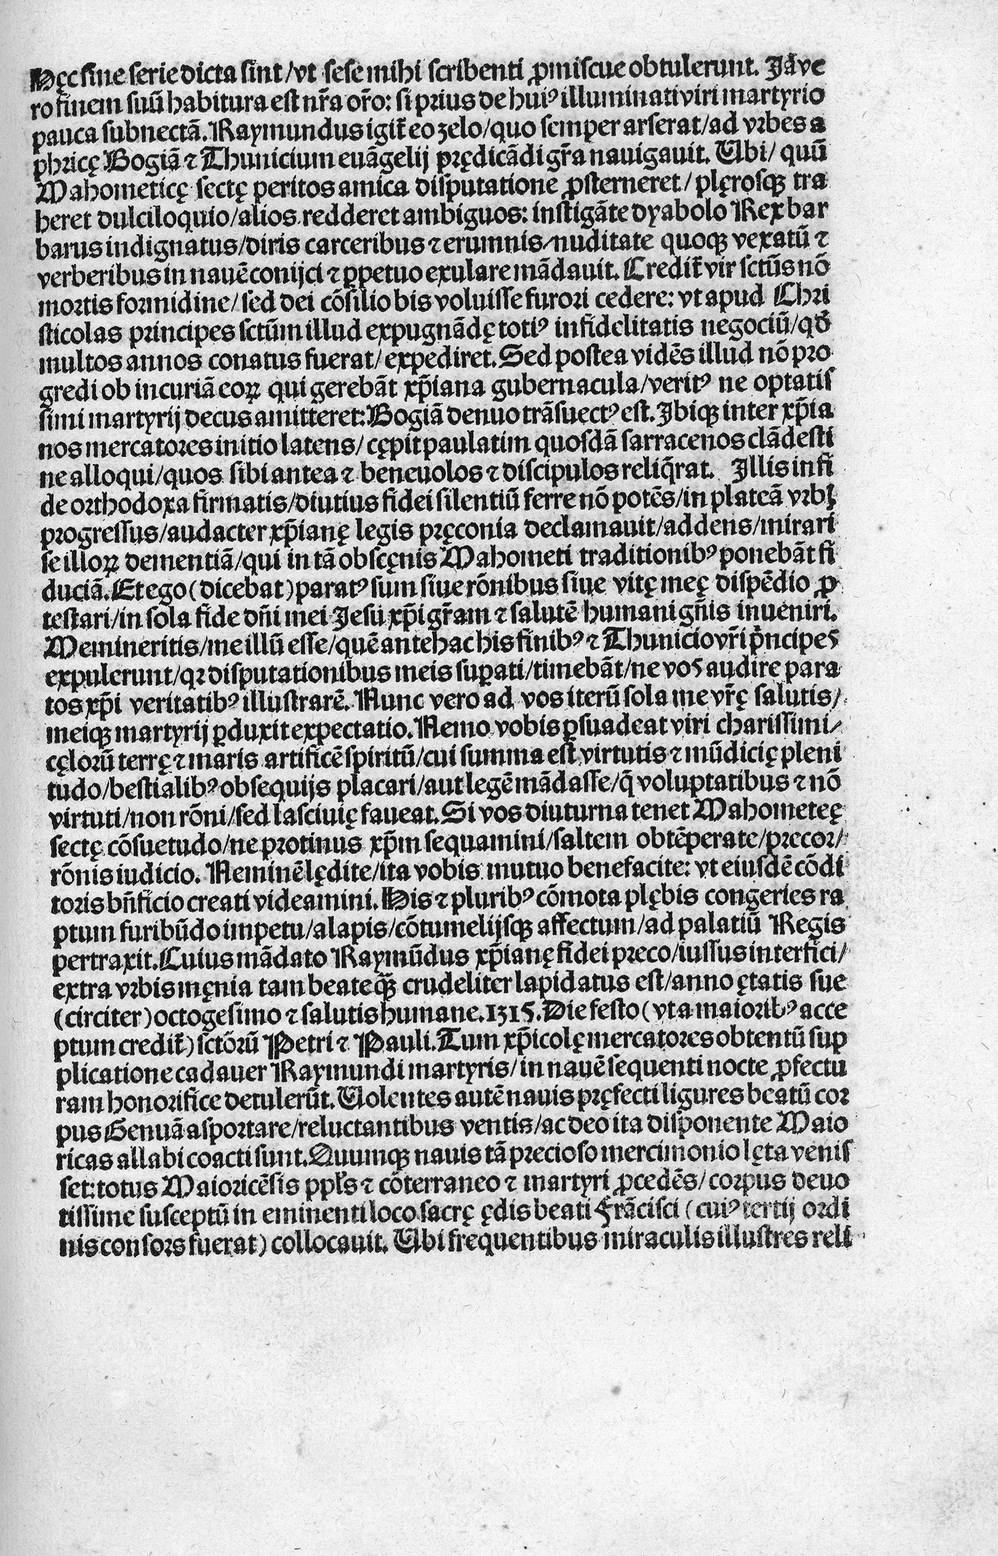 Hęc sine serie dicta sint/vt sese mihi scribenti ꝓmiscue obtulerunt. Jā ve
ro finem suū habitura est nr̄a or̄o: si prius de huiꝰ illuminati viri martyrio
pauca subnectā. Raymundus igit̄ eo zelo/quo semper arserat/ad vrbes a
phricę Bogiā ⁊ Thunicium euāgelij prędicādi gr̄a nauigauit. Ubi/quū
Mahometicę sectę peritos amica disputatione ꝓsterneret/plęrosqꝫ tra
heret dulciloquio/alios redderet ambiguos: instigāte dyabolo Rex bar
barus indignatus/diris carceribus ⁊ erumnis/nuditate quoqꝫ vexatū ⁊
verberibus in nauē conijci ⁊ ꝑpetuo exulare mādauit. Credit̄ vir sctūs nō
mortis formidine/sed dei cōsilio bis voluisse furori cedere: vt apud Chri
sticolas principes sctūm illud expugnādę totiꝰ infidelitatis negociū/qd̄
multos annos conatus fuerat/expediret. Sed postea vidēs illud nō pro
gredi ob incuriā eoꝝ qui gerebāt xp̄iana gubernacula/veritꝰ ne optatis
simi martyrij decus amitteret: Bogiā denuo trāsuectꝰ est. Ibiqꝫ inter xp̄ia
nos mercatores initio latens/cępit paulatim quosdā sarracenos clādesti
ne alloqui/quos sibi antea ⁊ beneuolos ⁊ discipulos reliq̄rat. Illis in fi
de orthodoxa firmatis/diutius fidei silentiū ferre nō potēs/in plateā vrbꝭ
progressus/audacter xp̄ianę legis pręconia declamauit/addens/mirari
se illoꝝ dementiā/qui in tā obscęnis Mahometi traditionibꝰ ponebāt fi
duciā. Et ego (dicebat) paratꝰ sum siue rōnibus siue vitę meę dispēdio ꝓ
testari/in sola fide dn̄i mei Jesu xp̄i gr̄am ⁊ salutē humani gn̄is inueniri.
Memineritis/me illū esse/quē antehac his finibꝰ ⁊ Thunicio vr̄i pͥncipes
expulerunt/qꝛ disputationibus meis suꝑati/timebāt/ne vos audire para
tos xp̄i veritatibꝰ illustrarē. Nunc vero ad vos iterū sola me vr̄ę salutis/
meiqꝫ martyrij ꝑduxit expectatio. Nemo vobis ꝑsuadeat viri charissimi/
cęlorū terrę ⁊ maris artificē spiritū/cui summa est virtutis ⁊ mūdicię pleni
tudo/bestialibꝰ obsequijs placari/aut legē mādasse/q̄ voluptatibus ⁊ nō
virtuti/non rōni/sed lasciuię faueat. Si vos diuturna tenet Mahometeę
sectę cōsuetudo/ne protinus xp̄m sequamini/saltem obtēperate/precor/
rōnis iudicio. Neminē lędite/ita vobis mutuo benefacite: vt eiusdē cōdi
toris bn̄ficio creati videamini. His ⁊ pluribꝰ cōmota plębis congeries ra
ptum furibūdo impetu/alapis/cōtumelijsqꝫ affectum/ad palatiū Regis
pertraxit. Cuius mādato Raymūdus xp̄ianę fidei preco/iussus interfici/
extra vrbis męnia tam beate qꝫ̄ crudeliter lapidatus est/anno ętatis sue
(circiter) octogesimo ⁊ salutis humane. 1315. Die festo (vt a maioribꝰ acce
ptum credit̄) sctōrū Petri ⁊ Pauli. Tum xp̄icolę mercatores obtentū sup
plicatione cadauer Raymundi martyris/in nauē sequenti nocte ꝓfectu
ram honorifice detulerūt. Uolentes autē nauis pręfecti ligures beatū cor
pus Genuā asportare/reluctantibus ventis/ac deo ita disponente Maio
ricas allabi coacti sunt. Quumqꝫ nauis tā precioso mercimonio lęta venis
set: totus Maioricēsis pplūs ⁊ cōterraneo ⁊ martyri ꝓcedēs/corpus deuo
tissime susceptū in eminenti loco sacrę ędis beati Frācisci (cuiꝰ tertij ordi
nis consors fuerat) collocauit. Ubi frequentibus miraculis illustres reli